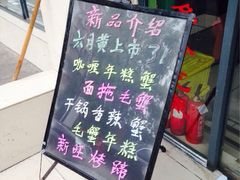 新品介绍
六月黄上市了!
咖喱年糕蟹
面拖毛蟹
干锅香辣蟹
毛蟹年糕
新旺烤蹄